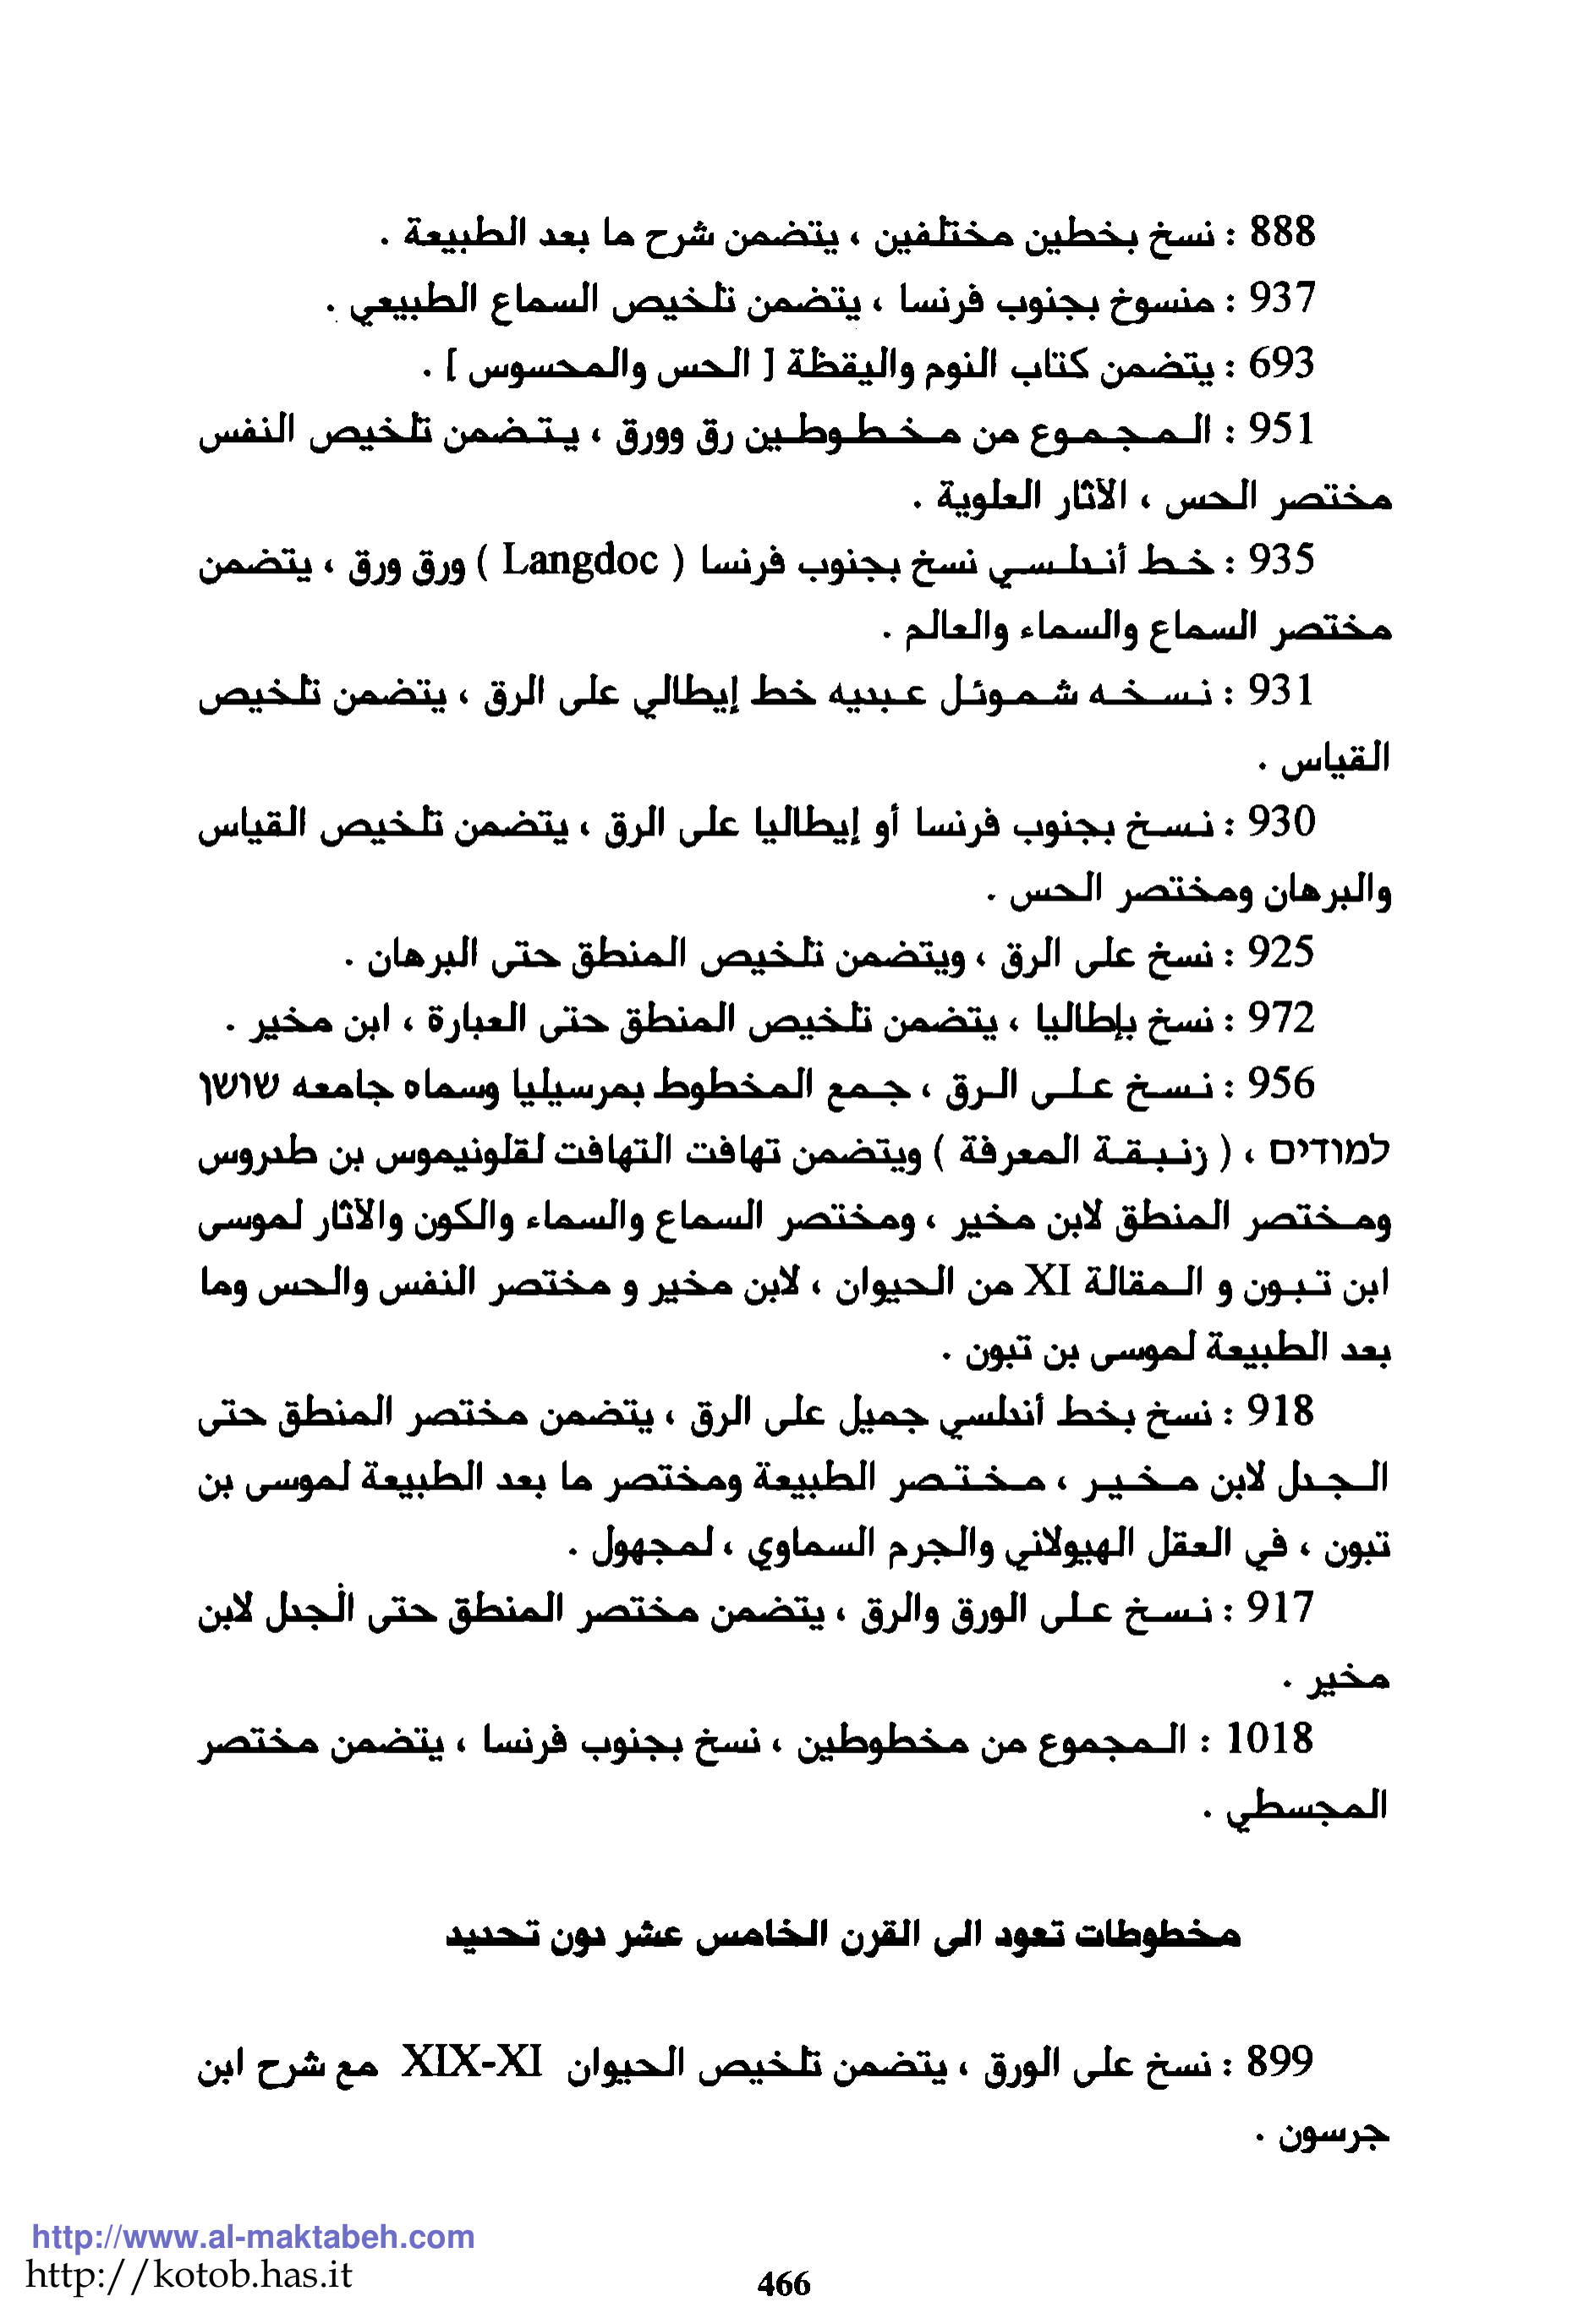 888 : نسخ بخطين مختلفين ، يتضمن شرح ما بعد الطبيعة .
937 : منسوخ بجنوب فرنسا ، يتضمن تلخيص السماع الطبيعي .
693 : يتضمن كتاب النوم واليقظة [ الحس والمحسوس ] .
951 : المجموع من مخطوطين رق وورق ، يتضمن تلخيص النفس
مختصر الحس ، الآثار العلوية .
935 : خط أندلسي نسخ بجنوب فرنسا ( Langdoc ) ورق ورق ، يتضمن
مختصر السماع والسماء والعالم .
931 : نسخه شموئل عبديه خط إيطالي على الرق ، يتضمن تلخيص
القياس .
930 : نسخ بجنوب فرنسا أو إيطاليا على الرق ، يتضمن تلخيص القياس
والبرهان ومختصر الحس .
925 : نسخ على الرق ، ويتضمن تلخيص المنطق حتى البرهان .
972 : نسخ بإطاليا ، يتضمن تلخيص المنطق حتى العبارة ، ابن مخير .
956 : نسخ على الرق ، جمع المخطوط بمرسيليا وسماه جامعه שושן
למודים ، ( زنبقة المعرفة ) ويتضمن تهافت التهافت لقلونيموس بن طدروس
ومختصر المنطق لابن مخير ، ومختصر السماع والسماء والكون والآثار لموسى
ابن تبون و المقالة XI من الحيوان ، لابن مخير و مختصر النفس والحس وما
بعد الطبيعة لموسى بن تبون .
918 : نسخ بخط أندلسي جميل على الرق ، يتضمن مختصر المنطق حتى
الجدل لابن مخير ، مختصر الطبيعة ومختصر ما بعد الطبيعة لموسى بن
تبون ، في العقل الهيولاني والجرم السماوي ، لمجهول .
917 : نسخ على الورق والرق ، يتضمن مختصر المنطق حتى الجدل لابن
مخير .
1018 : المجموع من مخطوطين ، نسخ بجنوب فرنسا ، يتضمن مختصر
المجسطي .
مخطوطات تعود الى القرن الخامس عشر دون تحديد
899 : نسخ على الورق ، يتضمن تلخيص الحيوان XIX-XI مع شرح ابن
جرسون .
http://www.al-maktabeh.com
http://kotob.has.it
466